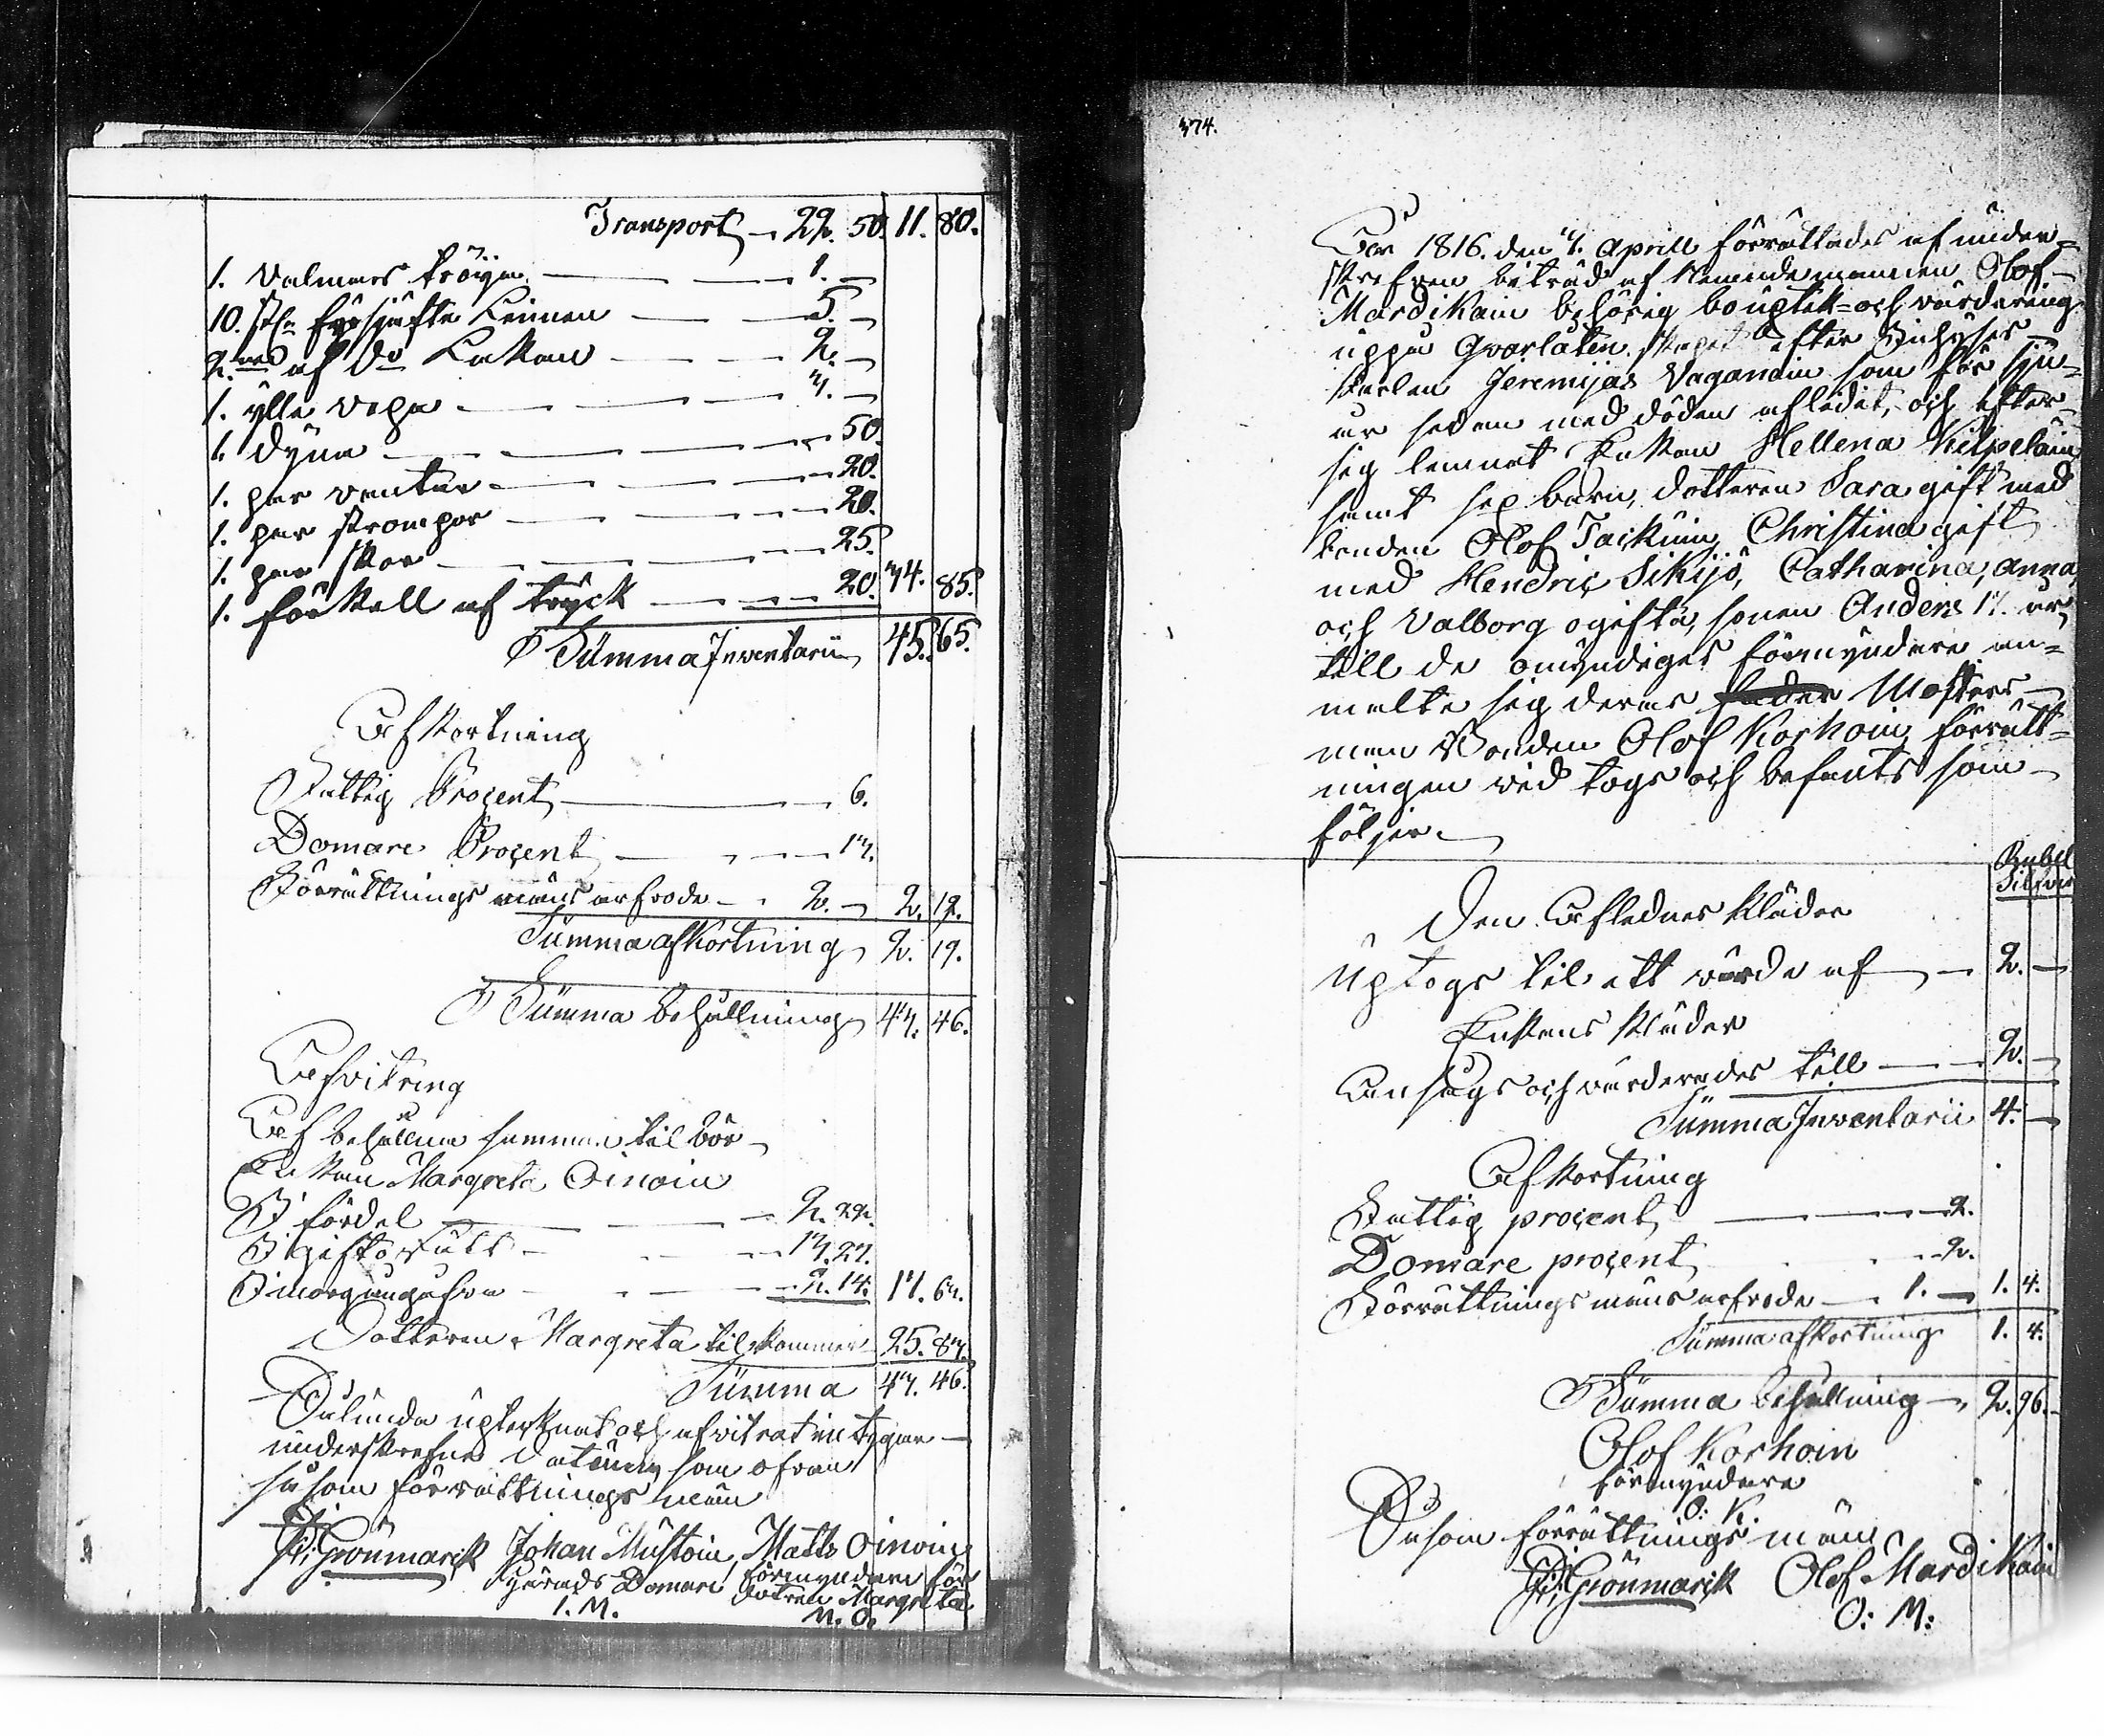 Transport — 22. 50. 11. 80.
1. valmars tröija — 1. —
10. st:n fyrsjäfts Linnen — 5. —
2. af do Lakan — 2. —
1. ylle vepa — 3. —
1. dyna — 50.
1. par vantar — 20.
1. par strompor — 20.
1. par skor — 25.
1. förkell af tryck — 20. 34. 85.
Summa Inventarii 45. 65.
Afkortning
Fattig Procent — 6.
Domare Procent — 13.
Förrättnings mäns arfvode — 2. — 2. 19.
Summa afkortning 2. 19.
Summa behållning 43. 46.
Afvitring
Af behållna summan tilbör
Enkan Margreta Oinoin
I fördel — 2. 22.
I giftorätt — 13. 23.
I morgongåfva — 2. 14. 17. 62.
Dotteren Margreta tilkommer 25. 83.
Summa 43. 46.
Sålunda uptecknat och afvitrat intygar
underskrefne datum som ofvan
såsom förrättnings män
Grönmarck Johan Mustoin, Matts Oinoin
Härads Domare förmyndare för
dotren Margreta
I. M. M. O.
374.
År 1816. den 3. Aprill förrättades af under=
skrefven biträd af Nemndemannen Olof
Mardikain behörig bouptek= och värdering
uppå qvarlåtenskapet efter Inhyses
karlen Jeremijas Vaganain som för sju=
år sedan med döden aflidit, och efter
sig lemnat Enkan Hellena Kilpeläin
samt sex barn, dotteren Sara gift med
bonden Olof Taskuin, Christina gift
med Hendric Sikijö, Catharina, Anna,
och Valborg ogifta, sonen Anders 17. år
till de omyndiges förmyndare an=
mälte sig deras Mosters
man Bonden Olof Korhoin, förrätt=
ningen vid togs och befants som
följer.
Rubel
Silfver
Den Aflednes kläder
Uptogs til ett värde af — 2. —
Enkans kläder
Ansågs och värderades till — 2. —
Summa Inventarii 4. —
Afkortning
Fattig procent — 2.
Domare procent — 2.
Förrättnings mäns arfvode — 1. — 1. 4.
Summa afkortning 1. 4.
Summa behållning — 2. 96.
Olof Korhoin
förmyndare
O: K.
Såsom förrättnings män
Grönmarck Olof Mardikain
O: M: